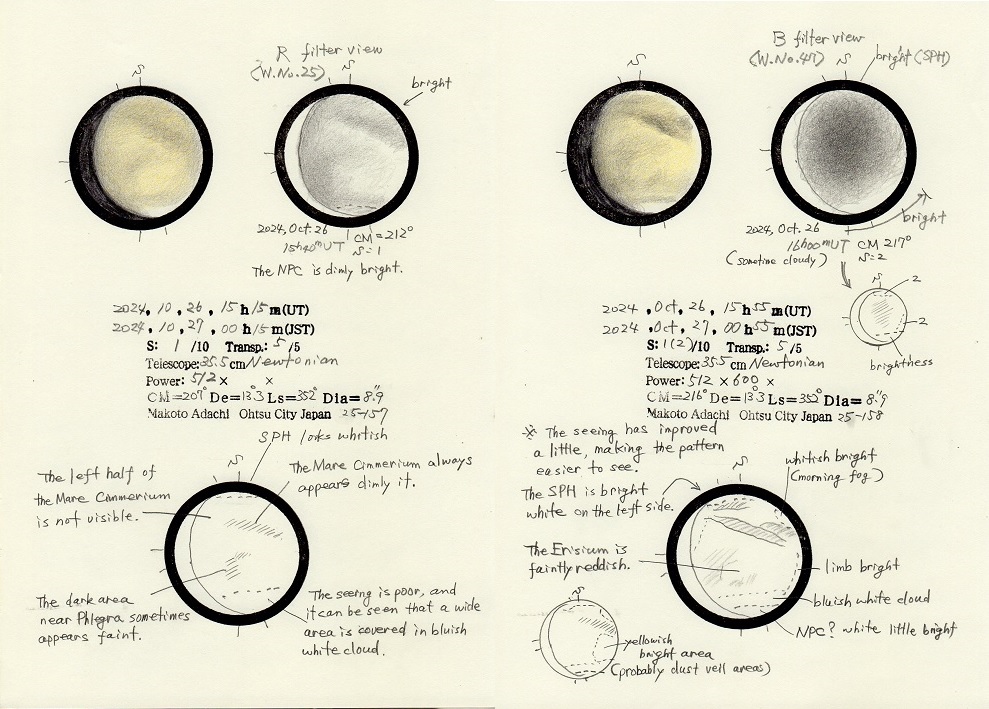 R filter view
(W.No.25)
S
S
bright
2024, Oct. 26
15h40mUT
CM=212°
S=1
The NPC is dimly bright.
2024, 10, 26, 15h15m(UT)
2024, 10, 27, 00h15m(JST)
S: 1 /10 Transp.: 5 /5
Telescope: 35.5 cm Newtonian
Power: 512 × ×
CM=207° De=13.3° Ls=352° Dia=8".9
Makoto Adachi Ohtsu City Japan 25-157
SPH looks whitish
S
The left half of
the Mare Cimmerium
is not visible.
The Mare Cimmerium always
appears dimly it.
The dark area
near Phlegra sometimes
appears faint.
The seeing is poor, and
it can be seen that a wide
area is covered in bluish
white cloud.
B filter view
(W.No.47)
S
S
bright (SPH)
bright
2024, Oct. 26
16h00mUT CM 217°
(sometime cloudy) S=2
S
2
2
brightness
2024, Oct, 26, 15h55m(UT)
2024, Oct, 27, 00h55m(JST)
S: 1(2)/10 Transp.: 5 /5
Telescope: 35.5 cm Newtonian
Power: 512 × 600 ×
CM=216° De=13.3° Ls=352° Dia=8".9
Makoto Adachi Ohtsu City Japan 25-158
※ The seeing has improved
a little, making the pattern
easier to see.
S
The SPH is bright
white on the left side.
whitish bright
(morning fog)
The Erisium is
faintly reddish.
limb bright
bluish white cloud
NPC? white little bright
S
yellowish
bright area
(probably dust veil areas)